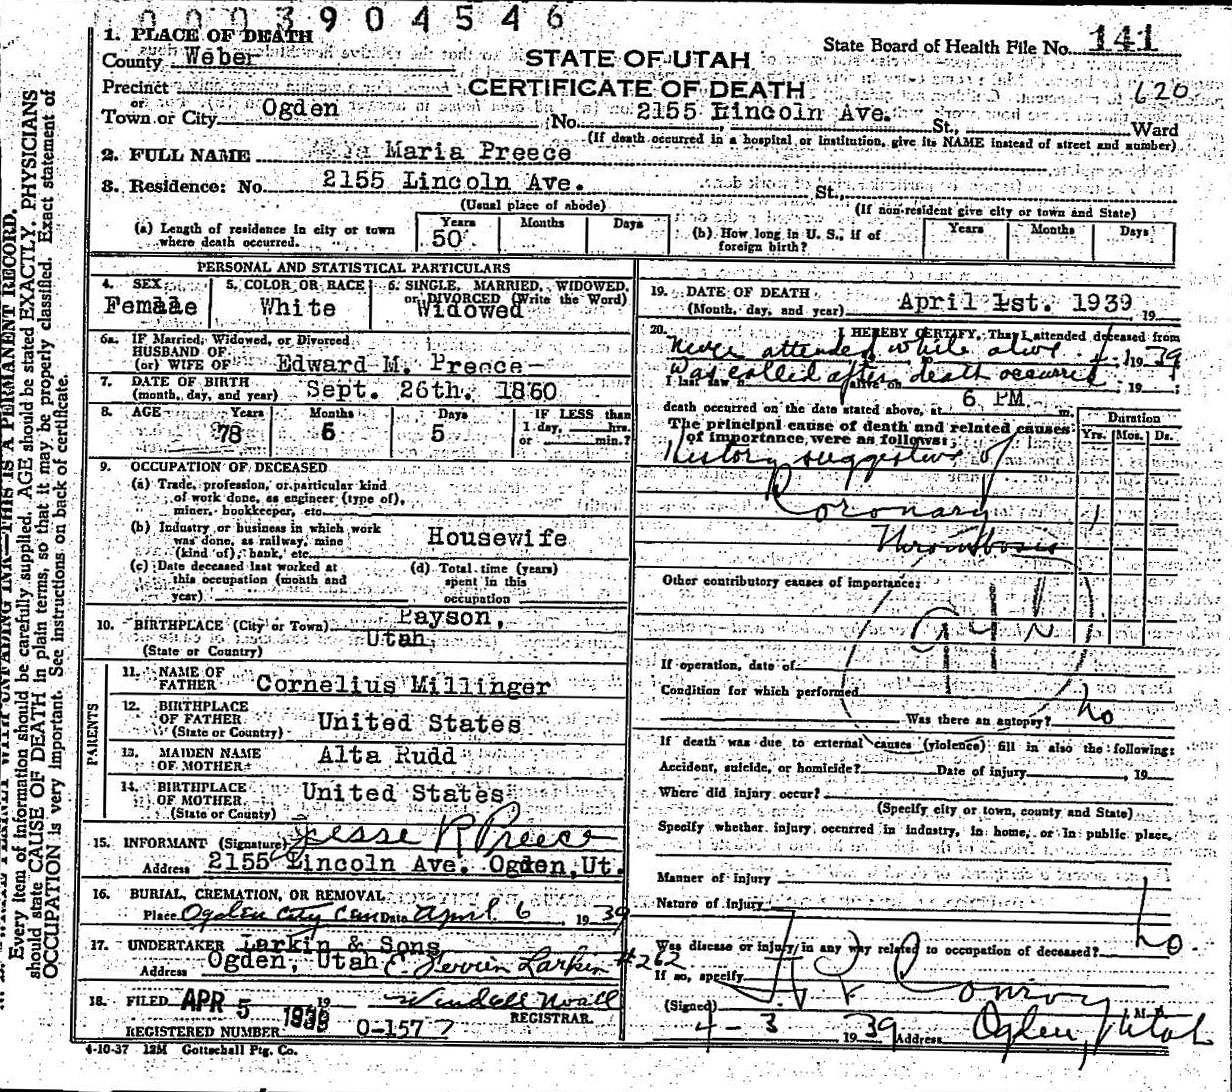 0003904546
1. PLACE OF DEATH
County Weber
STATE OF UTAH
State Board of Health File No. 141
Precinct
CERTIFICATE OF DEATH
620
or
Town or City Ogden No. 2155 Lincoln Ave. St., Ward
(If death occurred in a hospital or institution, give its NAME instead of street and number)
2. FULL NAME Maria Preece
3. Residence: No. 2155 Lincoln Ave. St.
(Usual place of abode) (If non-resident give city or town and State)
(a) Length of residence in city or town where death occurred. Years 50 Months Days
(b) How long in U. S., if of foreign birth? Years Months Days
PERSONAL AND STATISTICAL PARTICULARS
4. SEX 5. COLOR OR RACE 6. SINGLE, MARRIED, WIDOWED,
or DIVORCED (Write the Word)
Female White Widowed
6a. IF Married, Widowed, or Divorced
HUSBAND OF
(or) WIFE OF Edward M. Preece
7. DATE OF BIRTH
(month, day, and year) Sept. 26th. 1860
8. AGE Years Months Days IF LESS than
1 day, hrs.
or min.?
78 6 5
9. OCCUPATION OF DECEASED
(a) Trade, profession, or particular kind
of work done, as engineer (type of),
miner, bookkeeper, etc.
(b) Industry or business in which work
was done, as railway, mine
(kind of), bank, etc. Housewife
(c) Date deceased last worked at
this occupation (month and
year)
(d) Total time (years)
spent in this
occupation
10. BIRTHPLACE (City or Town) Payson,
Utah
(State or Country)
PARENTS
11. NAME OF
FATHER Cornelius Millinger
12. BIRTHPLACE
OF FATHER United States
(State or Country)
13. MAIDEN NAME
OF MOTHER Alta Rudd
14. BIRTHPLACE
OF MOTHER United States
(State or Country)
15. INFORMANT (Signature) Jesse R Preece
Address 2155 Lincoln Ave. Ogden, Ut.
16. BURIAL, CREMATION, OR REMOVAL
Place Ogden City Cem Date April 6 1939
17. UNDERTAKER Larkin & Sons
Address Ogden, Utah Larkin #262
18. FILED APR 5 1939
REGISTRAR.
REGISTERED NUMBER 0-157
4-10-37 12M Gottschall Ptg. Co.
19. DATE OF DEATH
(Month, day, and year) April 1st. 1939 19
20. I HEREBY CERTIFY, That I attended deceased from
Never attended while alive 4-1 1939
Was called after death occurred
I last saw h alive on 19 ;
death occurred on the date stated above, at 6 PM m.
The principal cause of death and related causes
of importance were as follows:
Duration
Yrs. Mos. Ds.
History suggestive of
Coronary
Thrombosis
Other contributory causes of importance:
94
If operation, date of
Condition for which performed
Was there an autopsy? no
If death was due to external causes (violence) fill in also the following:
Accident, suicide, or homicide? Date of injury , 19
Where did injury occur?
(Specify city or town, county and State)
Specify whether injury occurred in industry, in home, or in public place.
Manner of injury
Nature of injury
Was disease or injury in any way related to occupation of deceased? no.
If so, specify
(Signed) Conroy M.
4-3 1939 Address Ogden, Utah
THIS IS A PERMANENT RECORD.
Every item of information should be carefully supplied. AGE should be stated EXACTLY. PHYSICIANS
should state CAUSE OF DEATH in plain terms, so that it may be properly classified. Exact statement of
OCCUPATION is very important. See instructions on back of certificate.